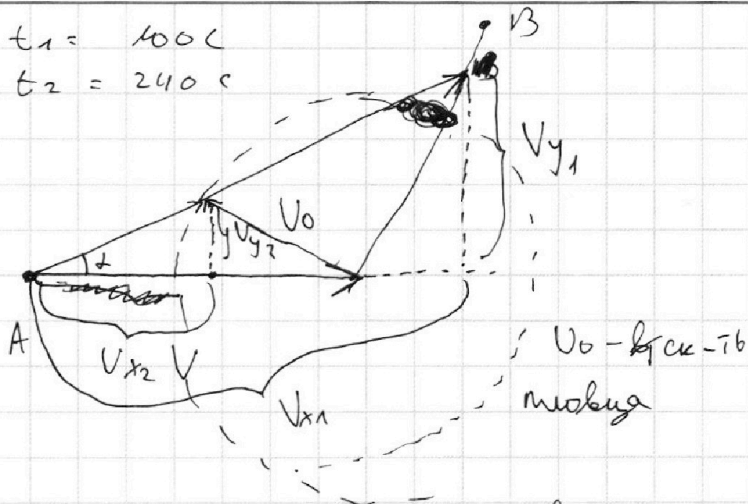 t₁ = 100 с
t₂ = 240 с
B
Vy₁
V₀
Vy₂
α
A
Vx₂
V
Vx₁
V₀ – ск-ть
пловца